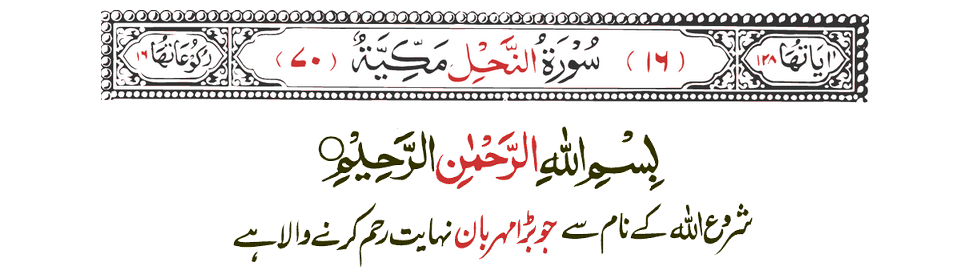 اٰیاتها ۱۲۸ (۱۶) سُوْرَةُ النَّحْلِ مَكِّيَّةٌ (۷۰) رکوعاتها ۱۶
بِسْمِ اللهِ الرَّحْمٰنِ الرَّحِيْمِ
شروع اللہ کے نام سے جو بڑا مہربان نہایت رحم کرنے والا ہے